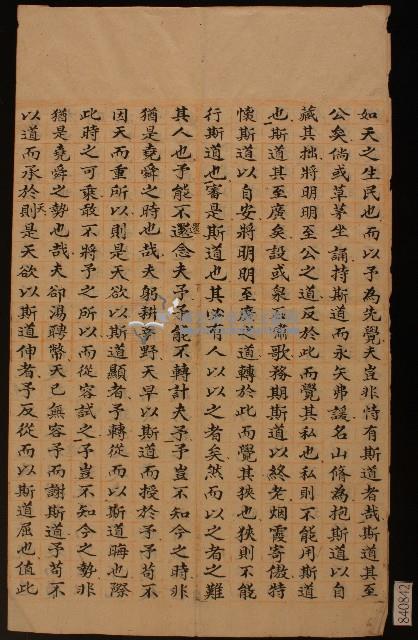 如天之生民也而以予為先覺夫豈非恃有斯道者哉斯道其至
公矣倘或草茅坐誦持斯道而永矢弗諼名山脩為抱斯道以自
藏其拙將明明至公之道反於此而覺其私也私則不能用斯道
也斯道其至廣矣設或泉 嘯歌務期斯道以終老烟霞寄傲特
懷斯道以自安將明明至廣之道轉於此而覺其狹也狹則不能
行斯道也審是斯道也其必有人以以之者矣然而以之者之難
其人也予能不還念夫予予能不轉計夫予予豈不知今之時非
猶是堯舜之時也哉夫躬耕 野天早以斯道而授於予予苟不
因天而重所以則是天欲以斯道顯者予轉從而以斯道晦也際
此時之可乘敢不將予之所以而從容試之予豈不知今之勢非
猶是堯舜之勢也哉夫卻湯聘幣天已無容予而謝斯道予苟不
以道而承於天則是天欲以斯道伸者予反從而以斯道屈也值此
840842